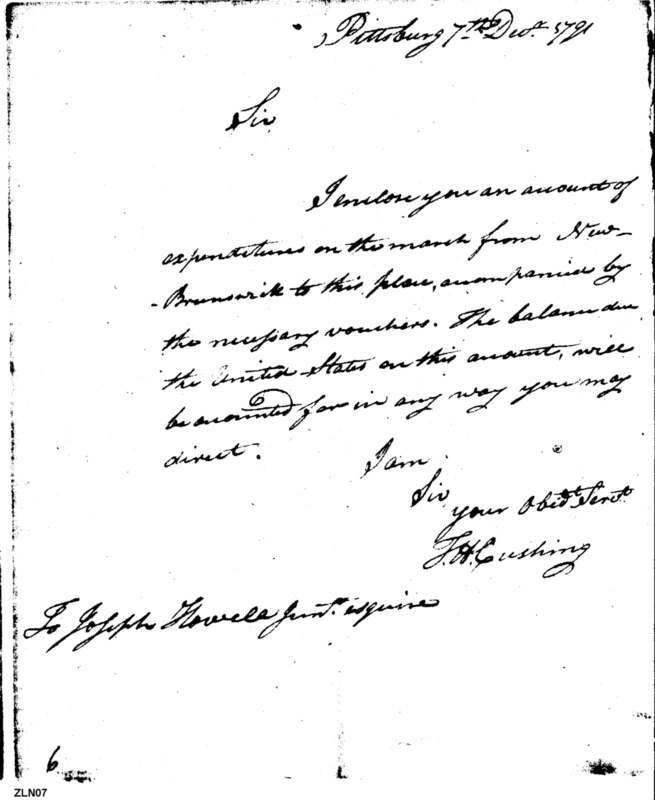 Pittsburg 7th Decr. 1791
Sir
I enclose you an account of
expenditures on the march from New-
-Brunswick to this place, accompanied by
the necessary vouchers. The balance due
the United States on this account, will
be accounted for in any way you may
direct.
I am
Sir
your Obedt. Servt.
T.H. Cushing
To Joseph Howell Junr. esquire
6
ZLN07